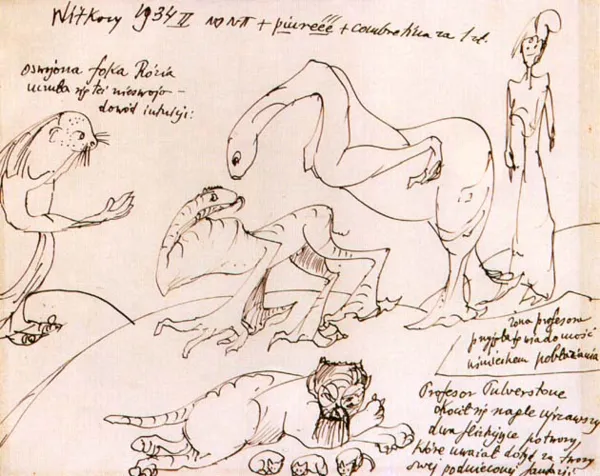 Witkacy 1934 II NP NΠ + piurééé + combretina za 1 zł.
Oswojona foka Rózia
czuła się też nieswojo –
dowód intuicji:
żona profesora
przyjęła tę wiadomość
uśmiechem pobłażania
Profesor Pulverstone
ocucił się nagle ujrzawszy
dwa fikające potwory
które uważał dotąd za twory
swej podnieconej fantazji